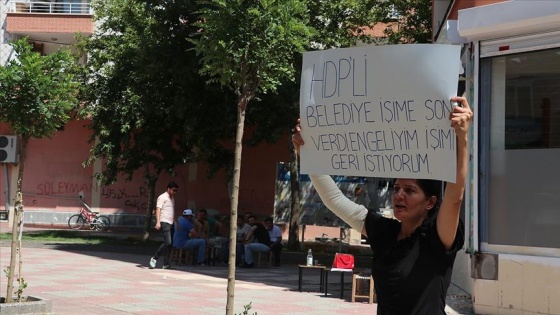 HDP'Lİ
BELEDİYE İŞİME SON
VERDİ ENGELİYİM İŞİMİ
GERİ İSTİYORUM
SÜLEYMAN